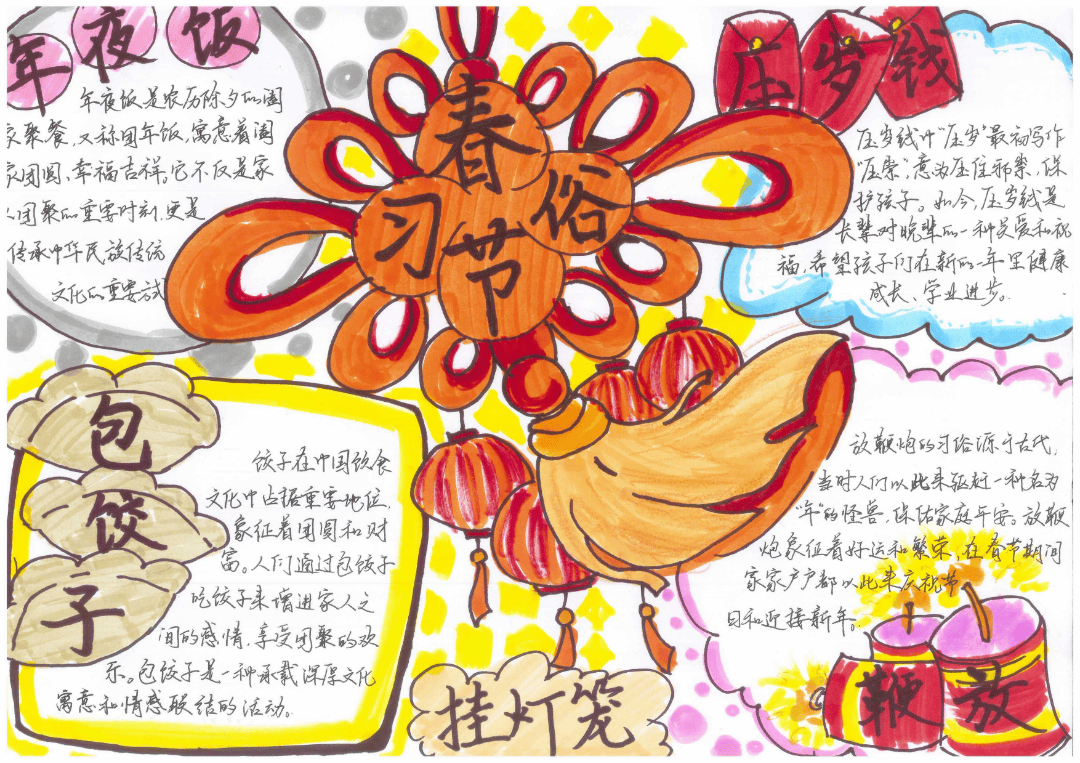 年夜饭
年夜饭是农历除夕的阖
家聚餐,又称团年饭,寓意着阖
家团圆、幸福吉祥。它不仅是家
人团聚的重要时刻,更是
传承中华民族传统
文化的重要方式
春
习 俗
节
压岁钱
压岁钱中“压岁”最初写作
“压祟”,意为压住邪祟,保
护孩子。如今,压岁钱是
长辈对晚辈的一种关爱和祝
福,希望孩子们在新的一年里健康
成长、学业进步。
包
饺
子
饺子在中国饮食
文化中占据重要地位,
象征着团圆和财
富。人们通过包饺子
吃饺子来增进家人之
间的感情,享受团聚的欢
乐。包饺子是一种承载深厚文化
寓意和情感联结的活动。
挂灯笼
放鞭炮的习俗源于古代,
当时人们以此来驱赶一种名为
“年”的怪兽,保佑家庭平安。放鞭
炮象征着好运和繁荣,在春节期间
家家户户都以此来庆祝节
日和迎接新年。
鞭 放